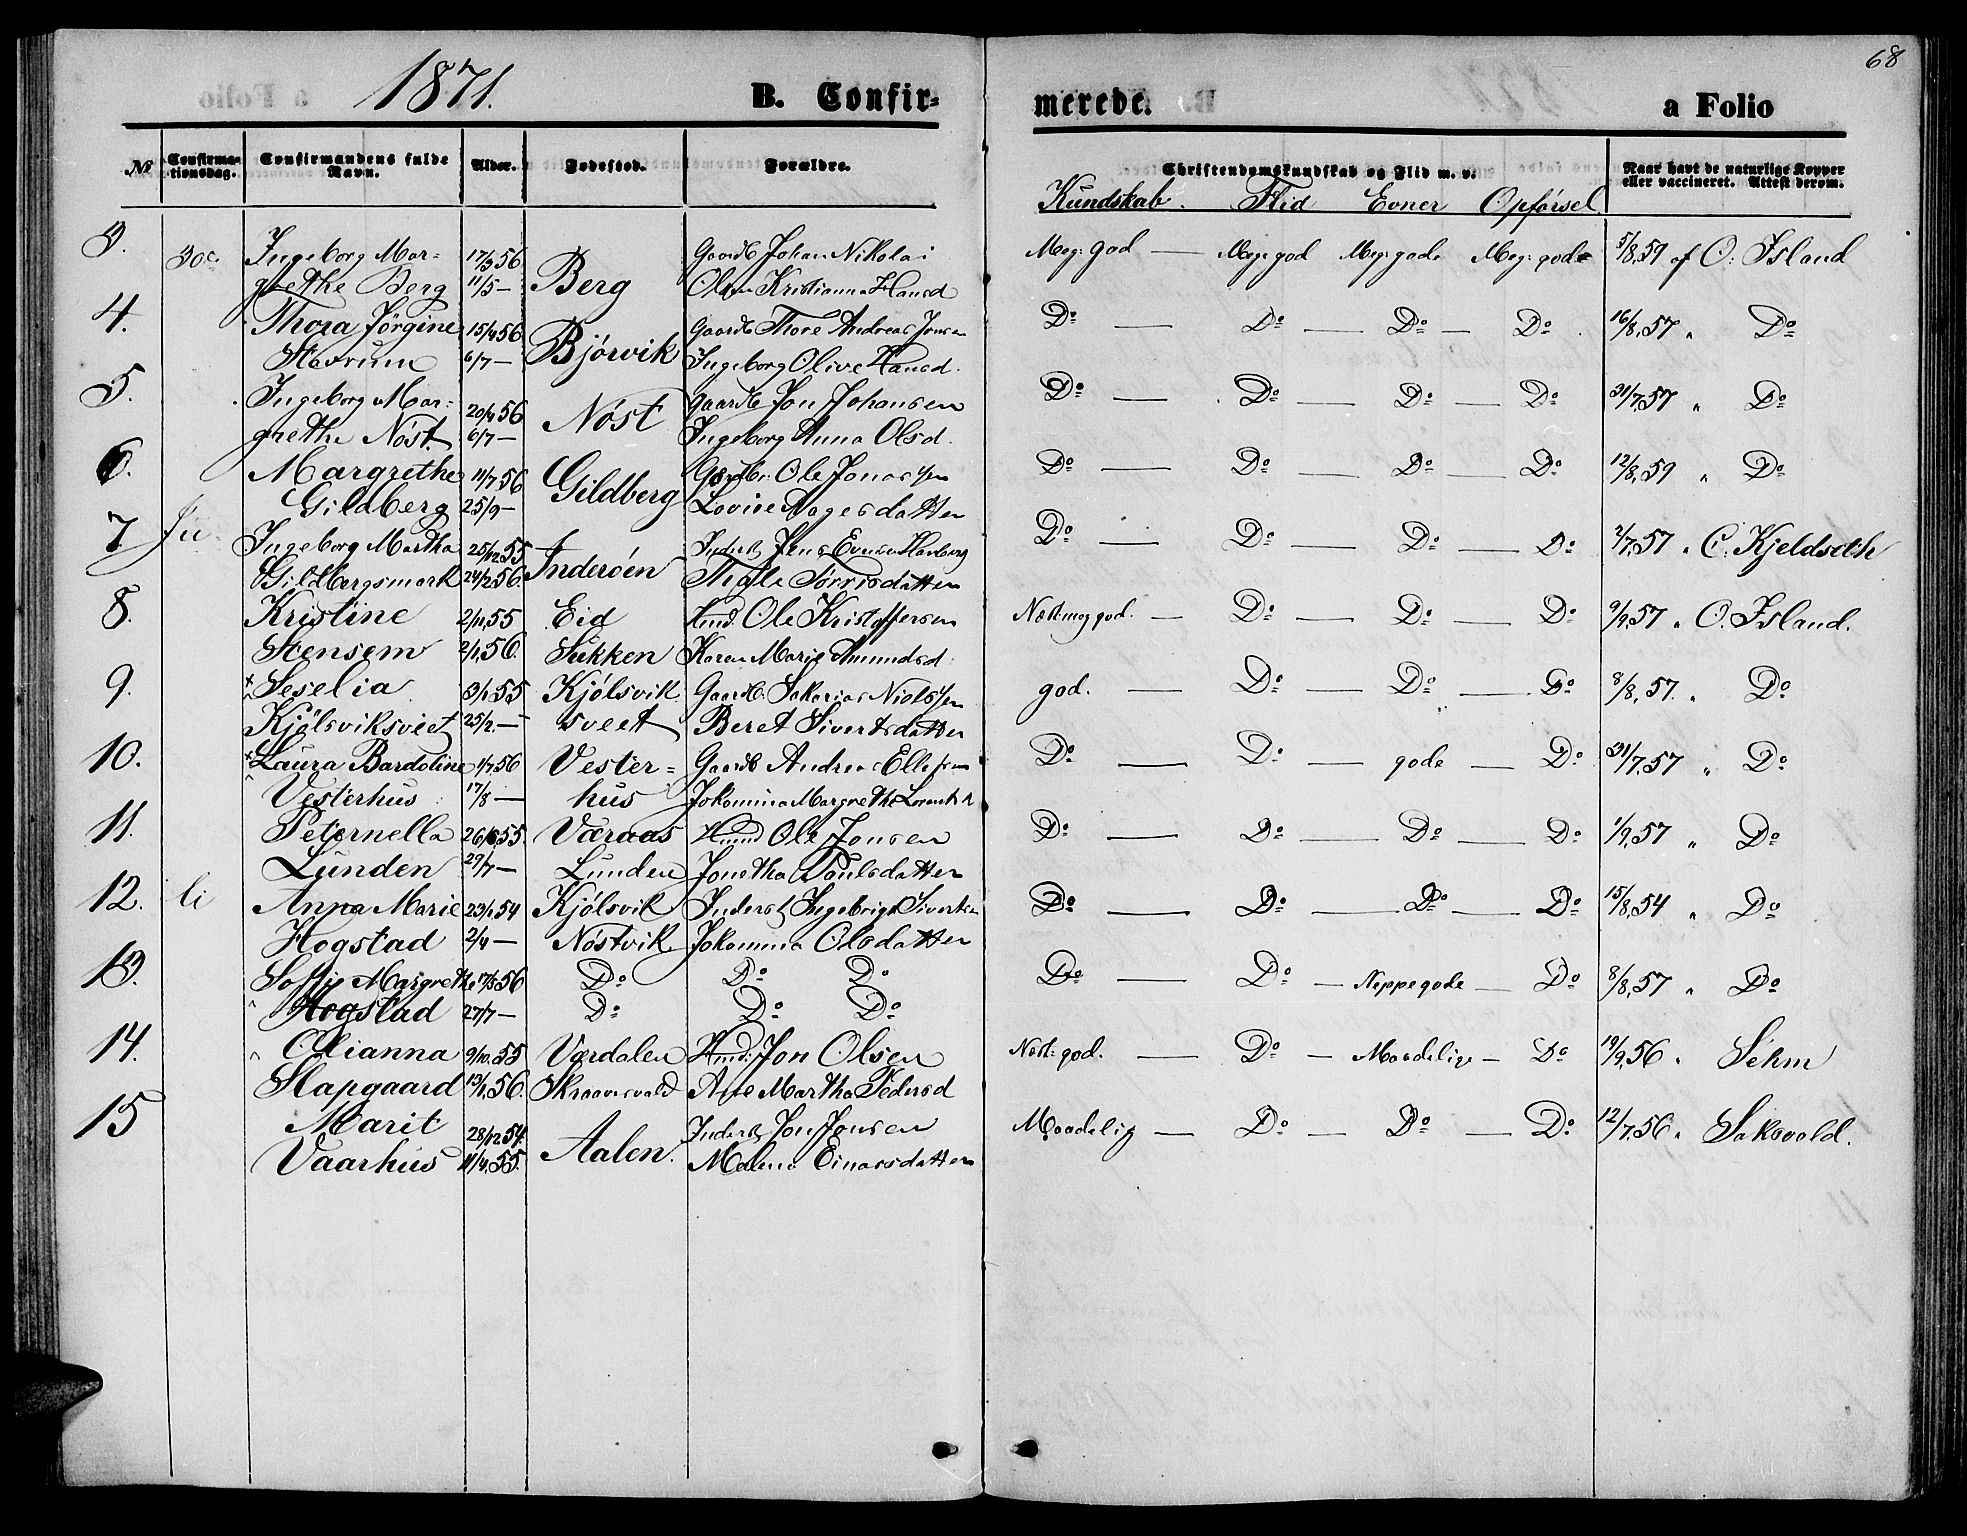 68
1871.
B. Confir=
merede.
a Folio
No
Confirma-
tionsdag.
Confirmandens fulde
Navn.
Alder.
Fødested.
Forældre.
Christendomskundskab og Flid m. v.
Naar havt de naturlige Kopper
eller vaccineret. Attest derom.
Kundskab. Flid Evner Opførsel.
3. Ingeborg Mar= 17/3 56 Gaardb Johan Nikolai Meg: god — Meg: god Meg: gode Meg: gode 5/8,59 af O: Island
grethe Berg 11/5 — Berg Olsen Kristianna Hansd
4. Thora Jørgine 15/4 56 Gaardb Thore Andreas Jensen Do — Do — Do — Do 16/8,57 " Do
Stavrum 6/7 — Bjørvik Ingeborg Olive Hansd.
5. Ingeborg Mar= 20/4 56 Nøst Gaardb Jon Johansen Do — Do — Do — Do 31/7,57 " Do
grethe Nøst. 6/7 — Ingeborg Anna Olsd.
6. Margrethe 11/7 56 Gildberg Gaardbr. Ole Jonassen Do — Do — Do — Do 12/8,59 " Do
Gildberg 25/9 — Lovise Aagesdatter
7 Ingeborg Martha 25/12 55 Inderøen Inderst Jens Evensen Do — Do — Do — Do 2/7,57 " C. Kjeldseth
Gildbergsmark 24/2 56. Sørrisdatter
8. Kristine 2/11,55 Eid Hmd. Ole Kristoffersen Næst meg god. — Do — Do — Do 9/9,57 " O. Island.
Stensem 2/1,56. Sukken Karen Marie Amundsd.
9. Seselia 3/1 55 Kjølsvik Gaardb. Sakarias Nielssen god. — Do — Do — Do 8/8,57. " Do
Kjølsviksveet 25/2. — sveet Beret Sivertsdatter
10. Laura Bardoline 1/7 56 Vester= Gaardb Andreas Ellefsen Do — Do — gode — Do 31/7,57 " Do
Vesterhus 17/8 — hus Jokomina Margrethe
11. Peternella 26/6 55. Væraas Hmd Ole Jonsen Do — Do — Do — Do 1/9,57 " Do
Lunden 29/7 — Lunden Jonetha Paulsdatter
12. Anna Marie 23/1 54 Kjølsvik Inderst Ingebrigt Sivertsen Do — Do — Do — Do 15/8,54 " Do
Hogstad 2/4 — Nøstvik Jokomina Olsdatter
13. Soffie Margrethe 17/5 56 Do Do Do Do — Do — Neppe gode — Do 8/8,57 " Do
Hogstad 27/7 — Do Do Do
14. Olianna 9/10.55 Værdalen Hmd: Jon Olsen Næst: god. — Do — Maadelige — Do 19/9,56 " Sehm
Slapgaard 13/1,56. Skraavesvald Ane Martha Pedersd
15 Marit 28/12 54. Aalen. Inderst Jon Jonsen Maadelig — Do — Do — Do 12/7,56 " Saksvold.
Vaarhus 11/4,55. Malene Einarsdatter